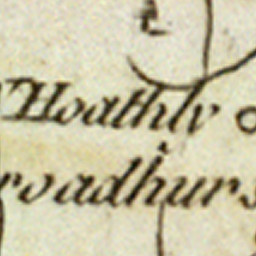 Hoathly
roadhurs